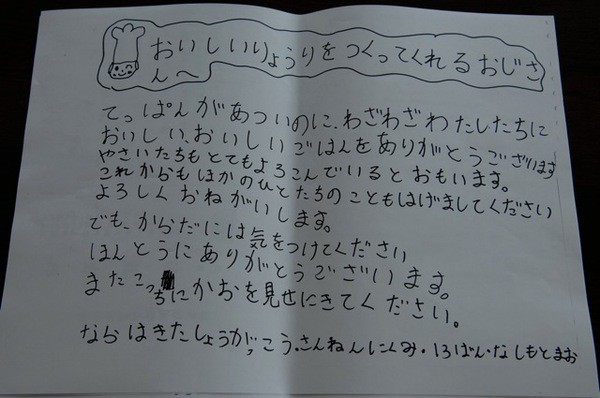 おいしいりょうりをつくってくれるおじさ
んへ
てっぱんがあついのに、わざわざわたしたちに
おいしい、おいしいごはんをありがとうございます
やさいたちもとてもよろこんでいるとおもいます。
これからもほかのひとたちのこともはげましてください
よろしくおねがいします。
でも、からだには気をつけてください
ほんとうにありがとうございます。
またこっちにかおを見せにきてください。
ならはきたしょうがっこう。さんねんにくみ・13ばん・なしもとまお